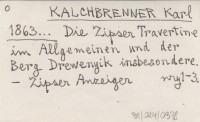 KALCHBRENNER Karl
1863... Die Zipser Travertine
im Allgemeinen und der
Berg Drewenyik insbesondere.
– Zipser Anzeiger nry1-3.